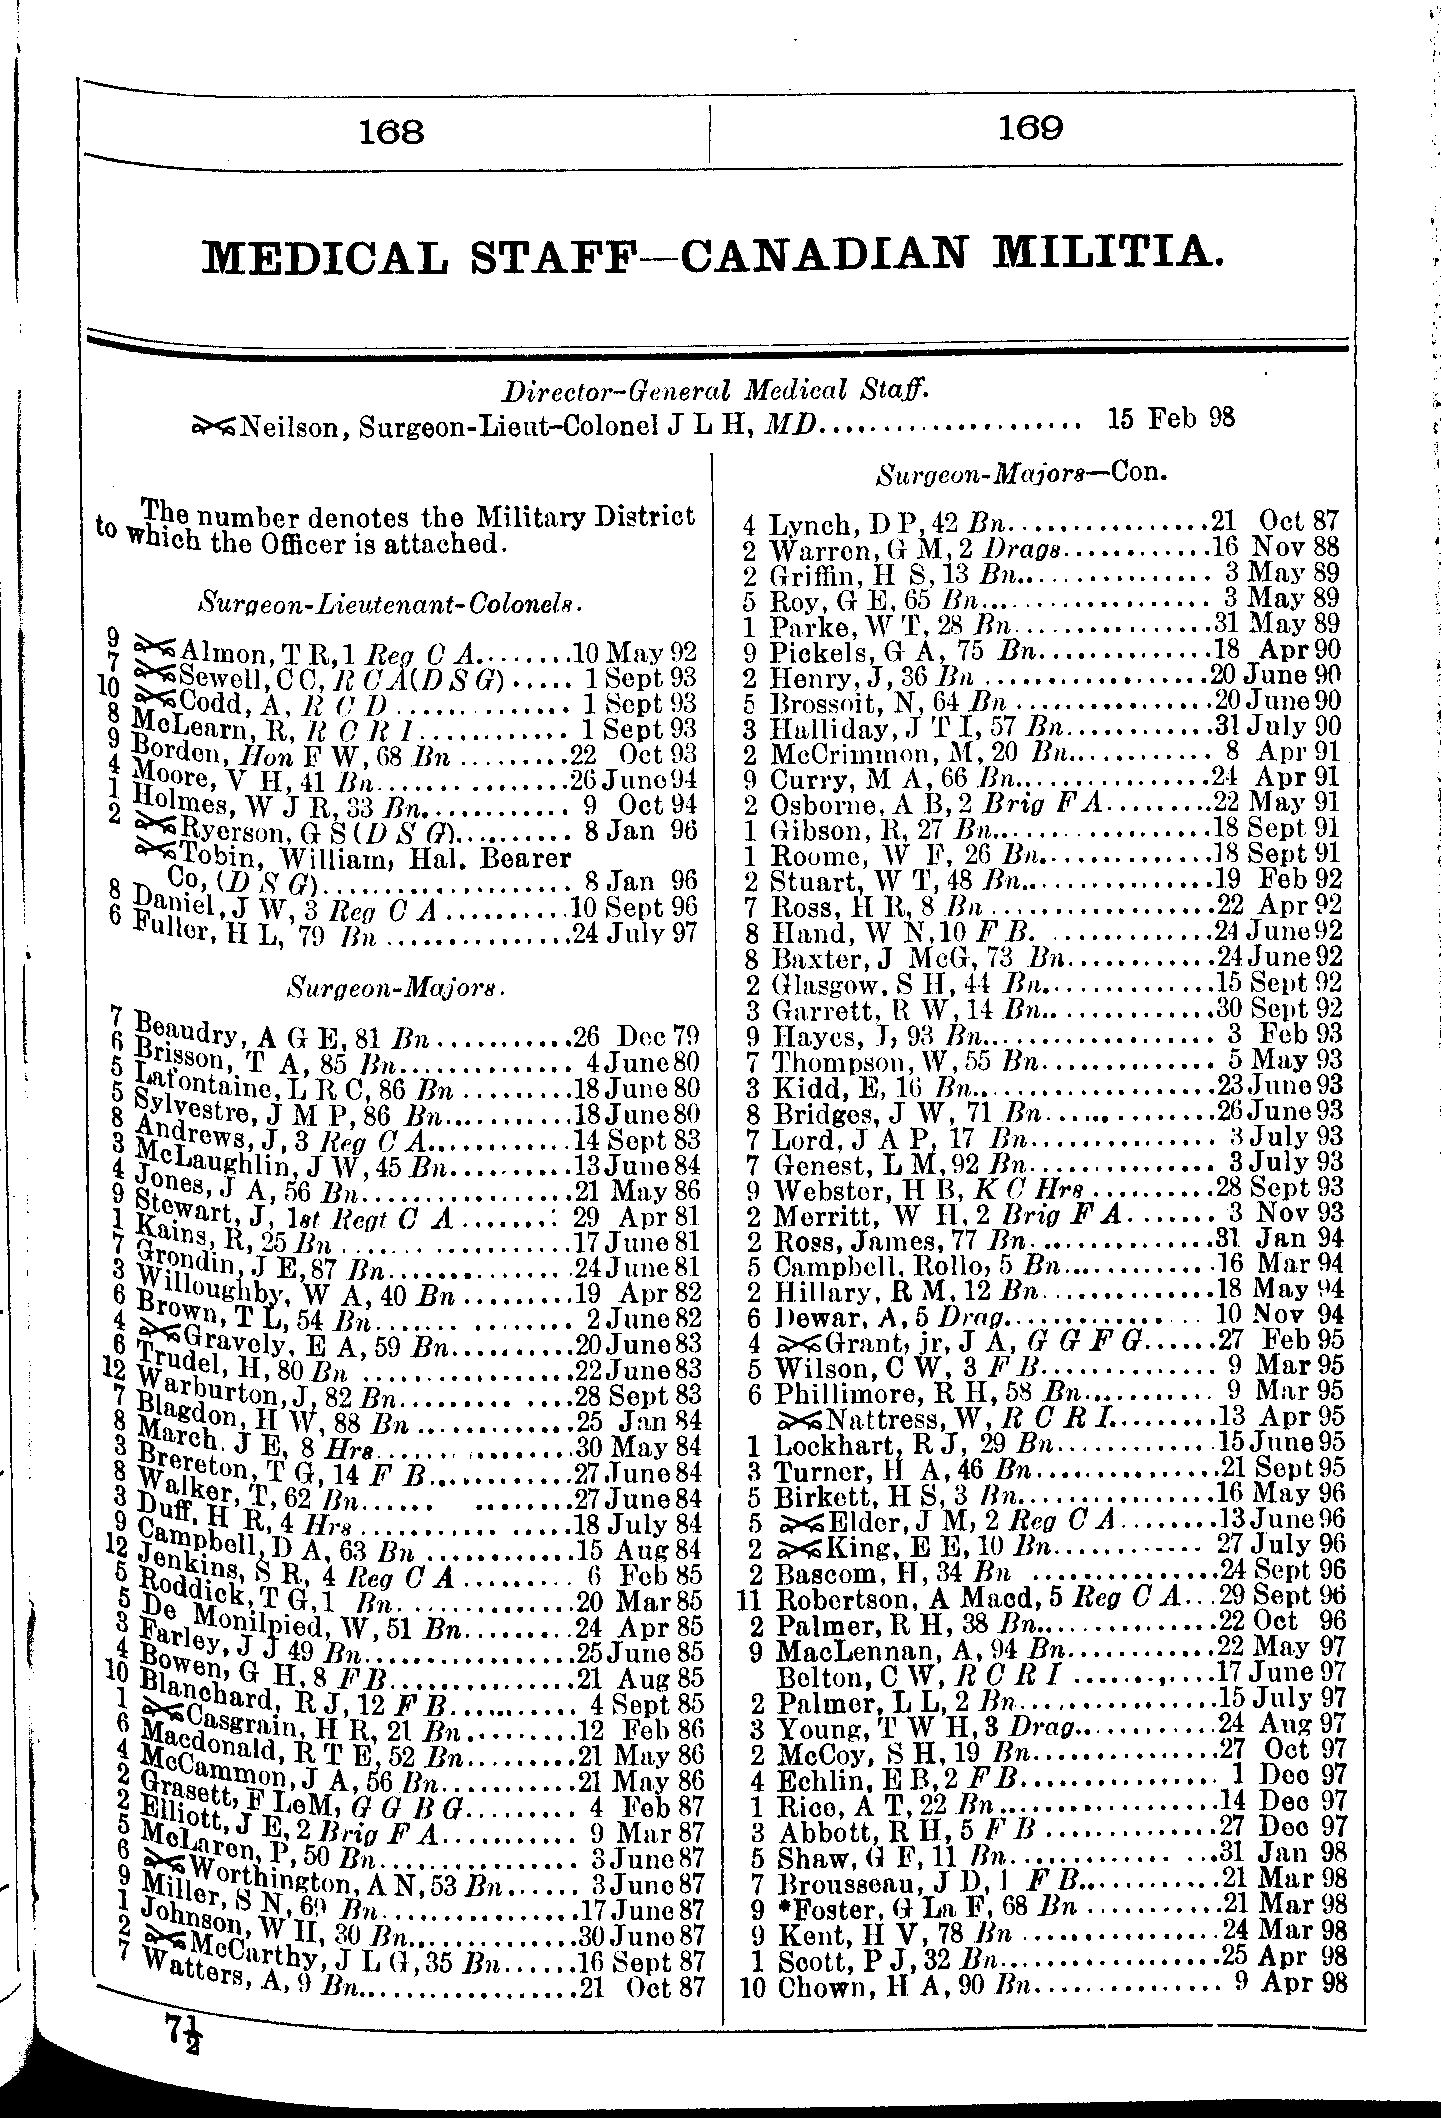 168
169
MEDICAL STAFF—CANADIAN MILITIA.
Director-General Medical Staff.
Neilson, Surgeon-Lieut-Colonel J L H, MD..................... 15 Feb 98
The number denotes the Military District
to which the Officer is attached.
Surgeon-Lieutenant-Colonels.
9 Almon, T R, 1 Reg C A........10 May 92
7 Sewell, C C, R C A (D S G)..... 1 Sept 93
10 Codd, A, R C D.............. 1 Sept 93
8 McLearn, R, R C R I............ 1 Sept 93
9 Borden, Hon F W, 68 Bn.........22 Oct 93
4 Moore, V H, 41 Bn...............26 June 94
1 Holmes, W J R, 33 Bn............ 9 Oct 94
2 Ryerson, G S (D S G).......... 8 Jan 96
Tobin, William, Hal. Bearer
Co, (D S G).................... 8 Jan 96
8 Daniel, J W, 3 Reg C A..........10 Sept 96
6 Fuller, H L, 79 Bn...............24 July 97
Surgeon-Majors.
7 Beaudry, A G E, 81 Bn...........26 Dec 79
6 Brisson, T A, 85 Bn.............. 4 June 80
5 Lafontaine, L R C, 86 Bn.........18 June 80
5 Sylvestre, J M P, 86 Bn..........18 June 80
8 Andrews, J, 3 Reg C A............14 Sept 83
3 McLaughlin, J W, 45 Bn..........13 June 84
4 Jones, J A, 56 Bn.................21 May 86
9 Stewart, J, 1st Regt C A.......: 29 Apr 81
1 Kains, R, 25 Bn..................17 June 81
7 Grondin, J E, 87 Bn..............24 June 81
3 Willoughby, W A, 40 Bn.........19 Apr 82
6 Brown, T L, 54 Bn............... 2 June 82
4 Gravely, E A, 59 Bn..........20 June 83
6 Trudel, H, 80 Bn................22 June 83
12 Warburton, J, 82 Bn.............28 Sept 83
7 Blagdon, H W, 88 Bn............25 Jan 84
8 March. J E, 8 Hrs................30 May 84
3 Brereton, T G, 14 F B............27 June 84
8 Walker, T, 62 Bn..............27 June 84
3 Duff, H R, 4 Hrs.................18 July 84
9 Campbell, D A, 63 Bn............15 Aug 84
12 Jenkins, S R, 4 Reg C A......... 6 Feb 85
5 Roddick, T G, 1 Bn..............20 Mar 85
5 De Monilpied, W, 51 Bn.........24 Apr 85
3 Farley, J J 49 Bn................25 June 85
4 Bowen, G H, 8 F B...............21 Aug 85
10 Blanchard, R J, 12 F B........... 4 Sept 85
1 Casgrain, H R, 21 Bn.........12 Feb 86
6 Macdonald, R T E, 52 Bn.........21 May 86
4 McCammon, J A, 56 Bn...........21 May 86
2 Grasett, F LeM, G G B G......... 4 Feb 87
2 Elliott, J E, 2 Brig F A........... 9 Mar 87
5 McLaren, P, 50 Bn................ 3 June 87
6 Worthington, A N, 53 Bn...... 3 June 87
9 Miller, S N, 69 Bn...............17 June 87
1 Johnson, W H, 30 Bn.............30 June 87
2 McCarthy, J L G, 35 Bn......16 Sept 87
7 Watters, A, 9 Bn..................21 Oct 87
7½
Surgeon-Majors—Con.
4 Lynch, D P, 42 Bn................21 Oct 87
2 Warren, G M, 2 Drags............16 Nov 88
2 Griffin, H S, 13 Bn............... 3 May 89
5 Roy, G E, 65 Bn.................. 3 May 89
1 Parke, W T, 28 Bn................31 May 89
9 Pickels, G A, 75 Bn..............18 Apr 90
2 Henry, J, 36 Bn..................20 June 90
5 Brossoit, N, 64 Bn...............20 June 90
3 Halliday, J T I, 57 Bn............31 July 90
2 McCrimmon, M, 20 Bn............ 8 Apr 91
9 Curry, M A, 66 Bn................24 Apr 91
2 Osborne, A B, 2 Brig F A.........22 May 91
1 Gibson, R, 27 Bn..................18 Sept 91
1 Roome, W F, 26 Bn..............18 Sept 91
2 Stuart, W T, 48 Bn...............19 Feb 92
7 Ross, H R, 8 Bn..................22 Apr 92
8 Hand, W N, 10 F B..............24 June 92
8 Baxter, J McG, 73 Bn............24 June 92
2 Glasgow, S H, 44 Bn..............15 Sept 92
3 Garrett, R W, 14 Bn..............30 Sept 92
9 Hayes, J, 93 Bn.................. 3 Feb 93
7 Thompson, W, 55 Bn.............. 5 May 93
3 Kidd, E, 16 Bn...................23 June 93
8 Bridges, J W, 71 Bn..............26 June 93
7 Lord, J A P, 17 Bn............... 3 July 93
7 Genest, L M, 92 Bn............... 3 July 93
9 Webster, H B, K C Hrs..........28 Sept 93
2 Merritt, W H, 2 Brig F A....... 3 Nov 93
2 Ross, James, 77 Bn...............31 Jan 94
5 Campbell, Rollo, 5 Bn............16 Mar 94
2 Hillary, R M, 12 Bn..............18 May 94
6 Dewar, A, 5 Drag................ 10 Nov 94
4 Grant, jr, J A, G G F G......27 Feb 95
5 Wilson, C W, 3 F B.............. 9 Mar 95
6 Phillimore, R H, 58 Bn........... 9 Mar 95
Nattress, W, R C R I.........13 Apr 95
1 Lockhart, R J, 29 Bn.............15 June 95
3 Turner, H A, 46 Bn...............21 Sept 95
5 Birkett, H S, 3 Bn................16 May 96
5 Elder, J M, 2 Reg C A........13 June 96
2 King, E E, 10 Bn............ 27 July 96
2 Bascom, H, 34 Bn...............24 Sept 96
11 Robertson, A Macd, 5 Reg C A...29 Sept 96
2 Palmer, R H, 38 Bn..............22 Oct 96
9 MacLennan, A, 94 Bn............22 May 97
Belton, C W, R C R I...........17 June 97
2 Palmer, L L, 2 Bn................15 July 97
3 Young, T W H, 3 Drag............24 Aug 97
2 McCoy, S H, 19 Bn...............27 Oct 97
4 Echlin, E B, 2 F B................ 1 Dec 97
1 Rice, A T, 22 Bn..................14 Dec 97
3 Abbott, R H, 5 F B..............27 Dec 97
5 Shaw, G F, 11 Bn................31 Jan 98
7 Brousseau, J D, 1 F B............21 Mar 98
9 *Foster, G La F, 68 Bn...........21 Mar 98
9 Kent, H V, 78 Bn................24 Mar 98
1 Scott, P J, 32 Bn..................25 Apr 98
10 Chown, H A, 90 Bn............... 9 Apr 98